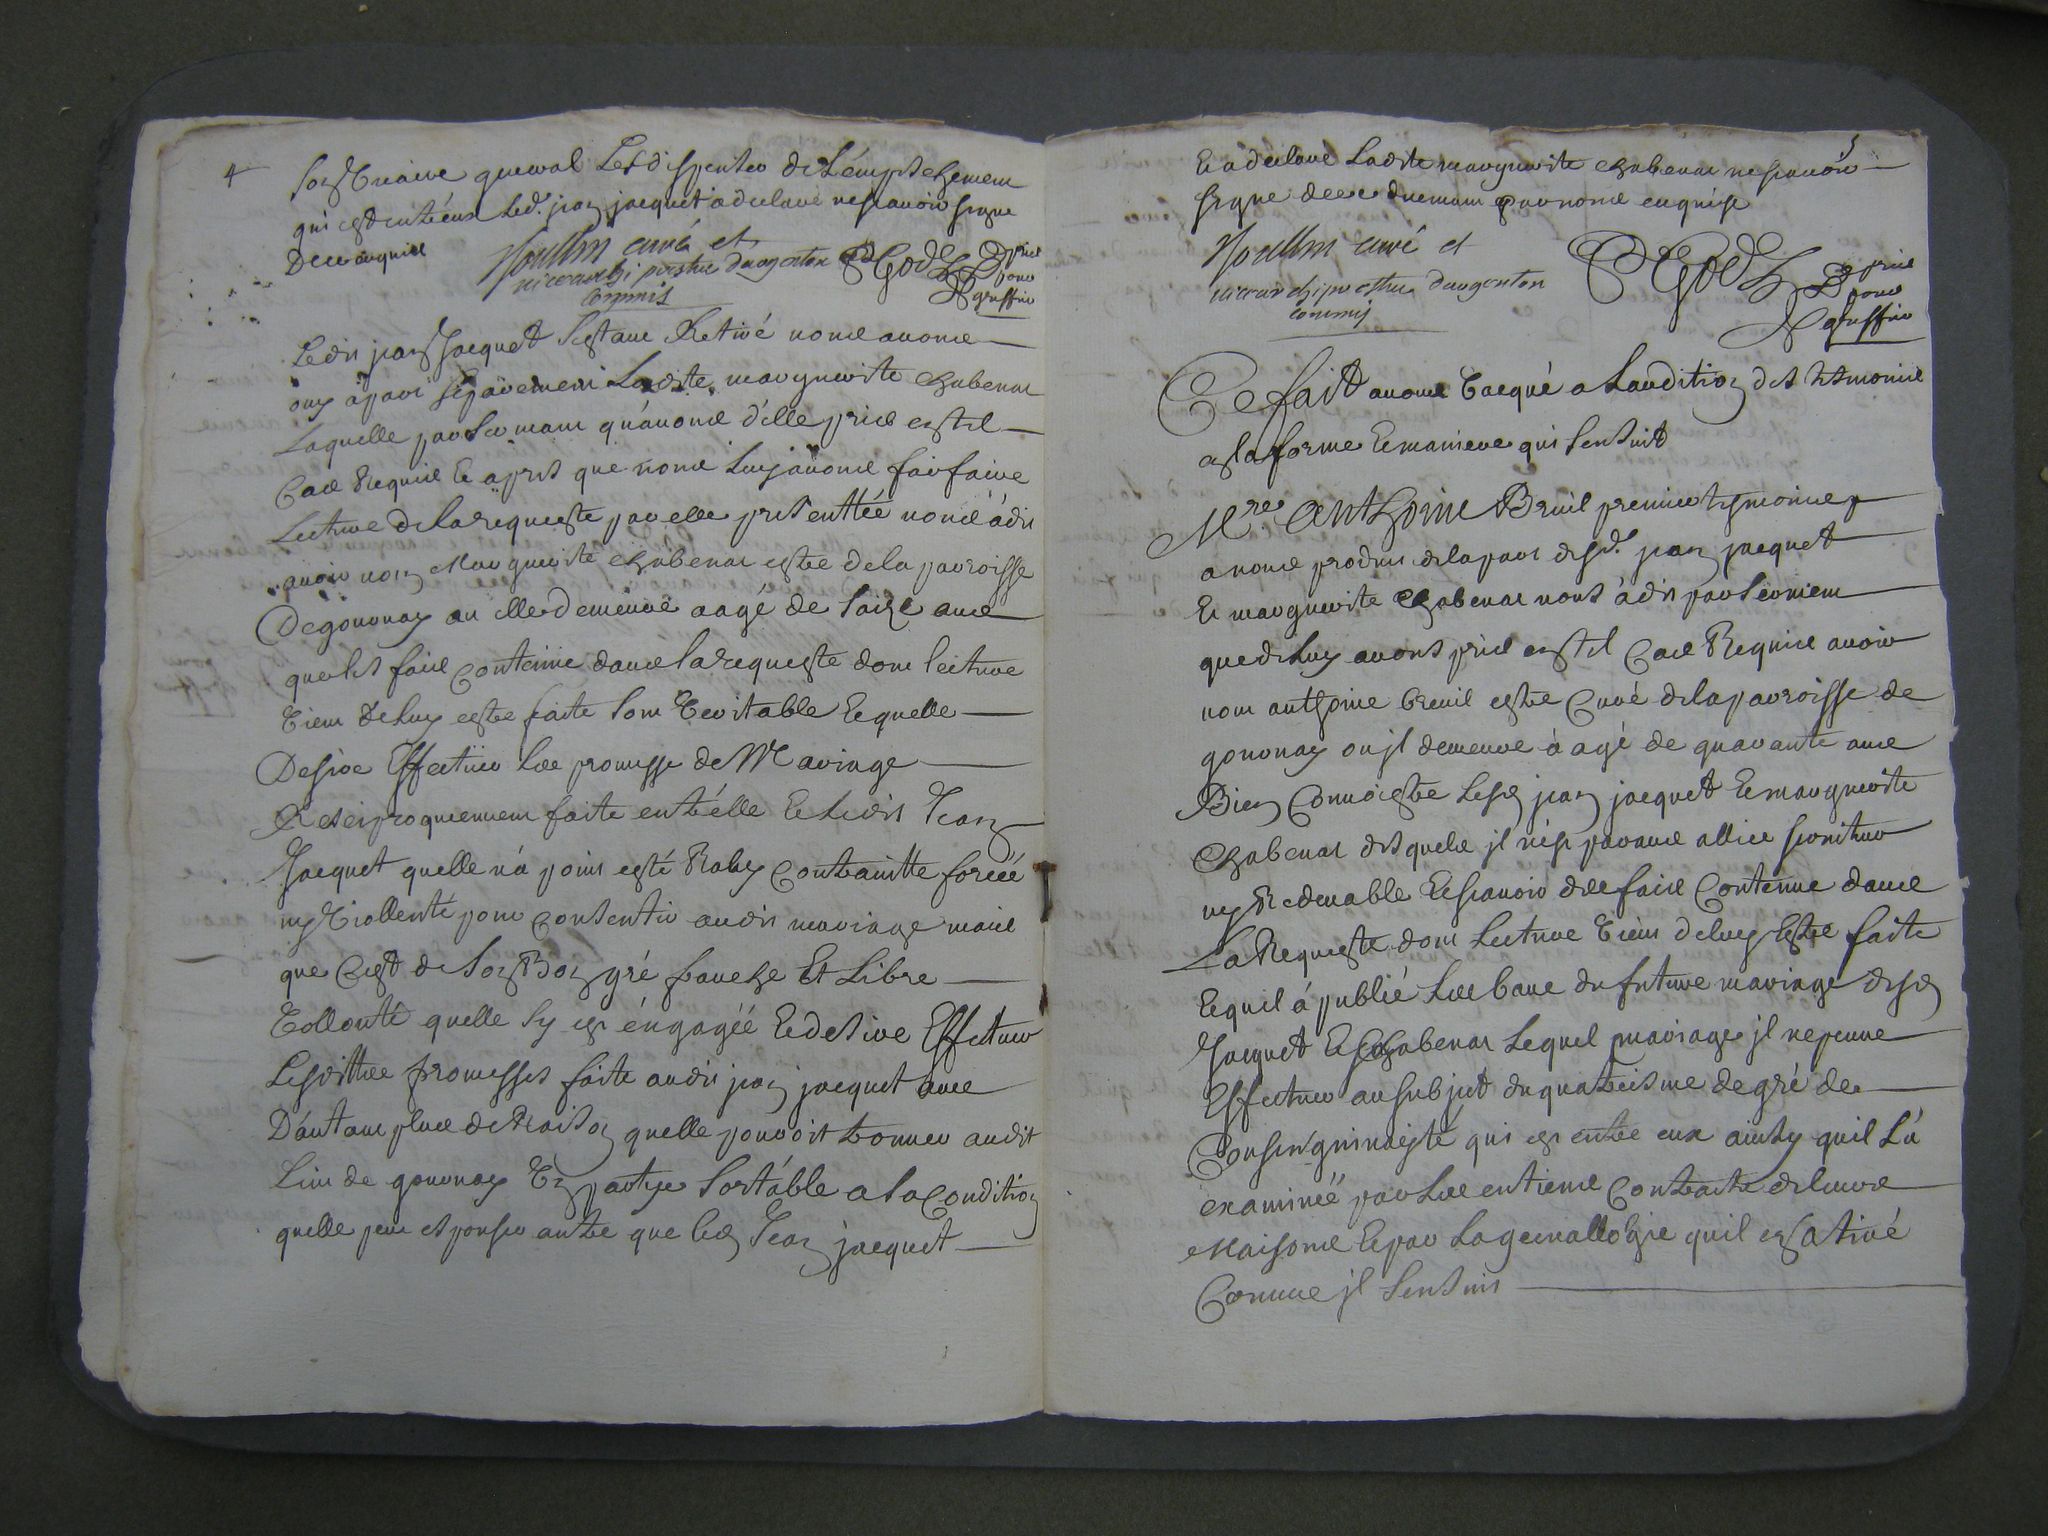 4
son vicaire general Les dispenser de L'empeschement
qui est entr'eux Led. jean jacquet a declaré ne scavoir signer
De ce enquis
Moullin curé et
vicearchiprestre dargenton
commis
pris
pour
greffier
Ledit jean Jacquet s'estant Retiré nous avons
ouy a part separement Ladite marguerite chabenat
Laquelle par serment qu'avons d'elle pris en tel
Cas Requis Et apres que nous luy avons fait faire
Lecture de la requeste par elle presenttée nous à dit
avoir nom Marguerite chabenat estre de la parroisse
De gournay ou elle demeure aagé de saize ans
que les faits contenus dans la requeste dont lecture
vient de luy estre faite sont veritable Et quelle
Desire Effectuer Les promesse de Mariage
Resiproquement faite entr'elle Et Ledit Jean
Jacquet quelle n'à point esté Raby contrainte forcéé
ny viollenté pour consentir audit mariage mais
que c'est de son Bon gré franche Et Libre
vollonté quelle s'y est éngagéé Et desire Effectuer
Lesdittes promesses faite audit jean jacquet avec
D'autant plus de Raison quelle pouvoit trouver audit
Lieu de gournay un partye sortable a la condition
quelle peut espouser autre que led Jean jacquet
5
Et a declaré Ladite marguerite chabenat ne scavoir
signer de ce duement par nous enquise
Moullin curé et
vicearchiprestre dargenton
commis
pris
pour
greffier
Ce fait avons vacqué a Laudition des tesmoins
en la forme Et maniere qui s'ensuit
Mre Anthoine Breuil premier tesmoins
a nous produit de la part desd. jean jacquet
Et marguerite chabenat nous à dit par serment
que de Luy avons pris en tel Cas Requis avoir
nom anthoine breuil estre Curé de la parroisse de
gournay ou jl demeure à agé de quarante ans
Bien Connoistre Lesd jean jacquet Et marguerite
chabenat desquels jl n'est parant allié serviteur
ny Redevable Et scavoir les faits Contenus dans
La Requeste dont Lecture vient de luy Estre faite
Et quil à publié Les bans du future mariage desd
Jacquet Et chabenat Lequel mariage jl ne peuve
Effectuer au subjet du quatriesme degré de
Consenguinnité qui est entre eux ainsy quil L'à
examinéé par Les entiens contracts de leurs
Maisons Et par La geneallogie quil en a tiré
Comme jl sensuit